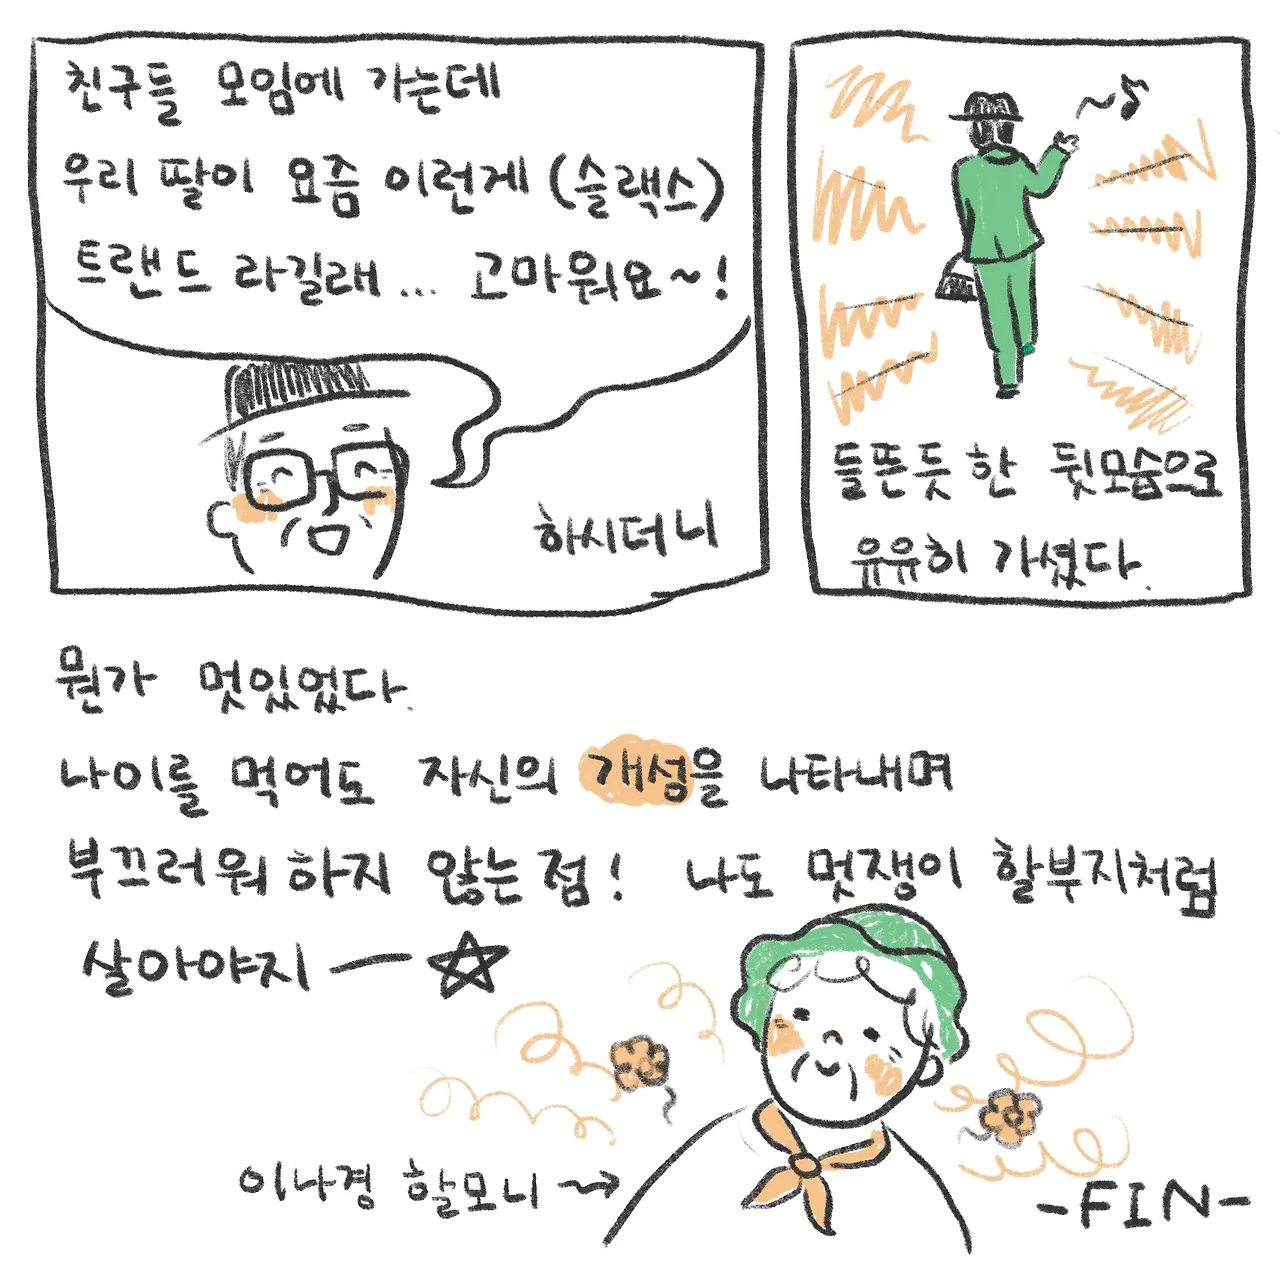 친구들 모임에 가는데
우리 딸이 요즘 이런게 (슬랙스)
트랜드 라길래... 고마워요~!
하시더니
들뜬듯한 뒷모습으로
유유히 가셨다.
뭔가 멋있었다.
나이를 먹어도 자신의 개성을 나타내며
부끄러워 하지 않는 점! 나도 멋쟁이 할부지처럼
살아야지 — ☆
이나경 할모니 →
-FIN-